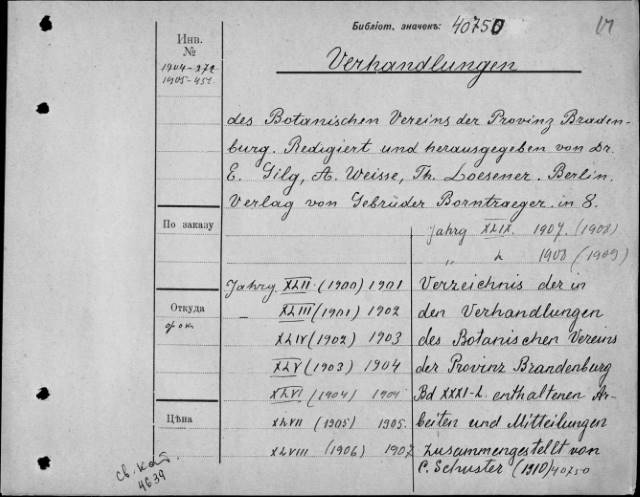 Библіот. значекъ: 40750
Инв.
№
1904-272
1905-451
Verhandlungen
des Botanischen Vereins der Provinz Braden-
burg. Redigiert und herausgegeben von Dr.
E. Gilg, A. Weisse, Th. Loesener. Berlin.
Verlag von Gebrüder Borntraeger. in 8.
По заказу
Jahrg XLIX. 1907. (1908)
„ L 1908 (1909)
Jahrg. XLII (1900) 1901
XLIII (1901) 1902
XLIV (1902) 1903
XLV (1903) 1904
XLVI (1904) 1904
XLVII (1905) 1905.
XLVIII (1906) 1907
Verzeichnis der in
den Verhandlungen
des Botanischen Vereins
der Provinz Brandenburg
Bd XXXI-L. enthaltenen Ar-
beiten und Mitteilungen
zusammengestellt von
C. Schuster (1910) 40750
Откуда
Цѣна
св. кат.
4639